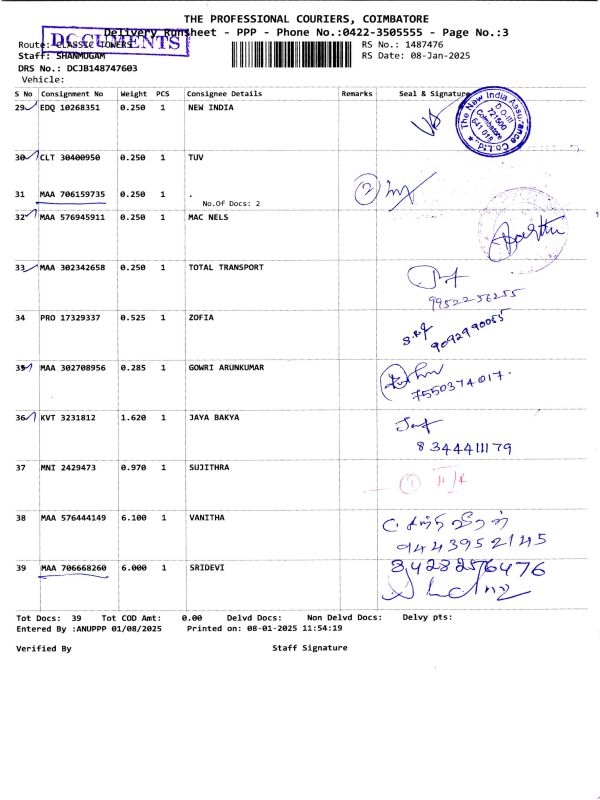 THE PROFESSIONAL COURIERS, COIMBATORE
Delivery Runsheet - PPP - Phone No.:0422-3505555 - Page No.:3
DOCUMENTS
Route: CLASSIC TOWERS RS No.: 1487476
Staff: SHANMUGAM RS Date: 08-Jan-2025
DRS No.: DCJB148747603
Vehicle:
S No Consignment No Weight PCS Consignee Details Remarks Seal & Signature
29 EDQ 10268351 0.250 1 NEW INDIA
The New India Assurance Co.Ltd. D O III 721500 Coimbatore 641 018
30 CLT 30400950 0.250 1 TUV
31 MAA 706159735 0.250 1 .
No.Of Docs: 2
2
32 MAA 576945911 0.250 1 MAC NELS
33 MAA 302342658 0.250 1 TOTAL TRANSPORT
9952256255
34 PRO 17329337 0.525 1 ZOFIA
9092990055
35 MAA 302708956 0.285 1 GOWRI ARUNKUMAR
7550374017.
36 KVT 3231812 1.620 1 JAYA BAKYA
8344411179
37 MNI 2429473 0.970 1 SUJITHRA
38 MAA 576444149 6.100 1 VANITHA
9443952145
39 MAA 706668260 6.000 1 SRIDEVI
Tot Docs: 39 Tot COD Amt: 0.00 Delvd Docs: Non Delvd Docs: Delvy pts:
Entered By :ANUPPP 01/08/2025 Printed on: 08-01-2025 11:54:19
Verified By Staff Signature